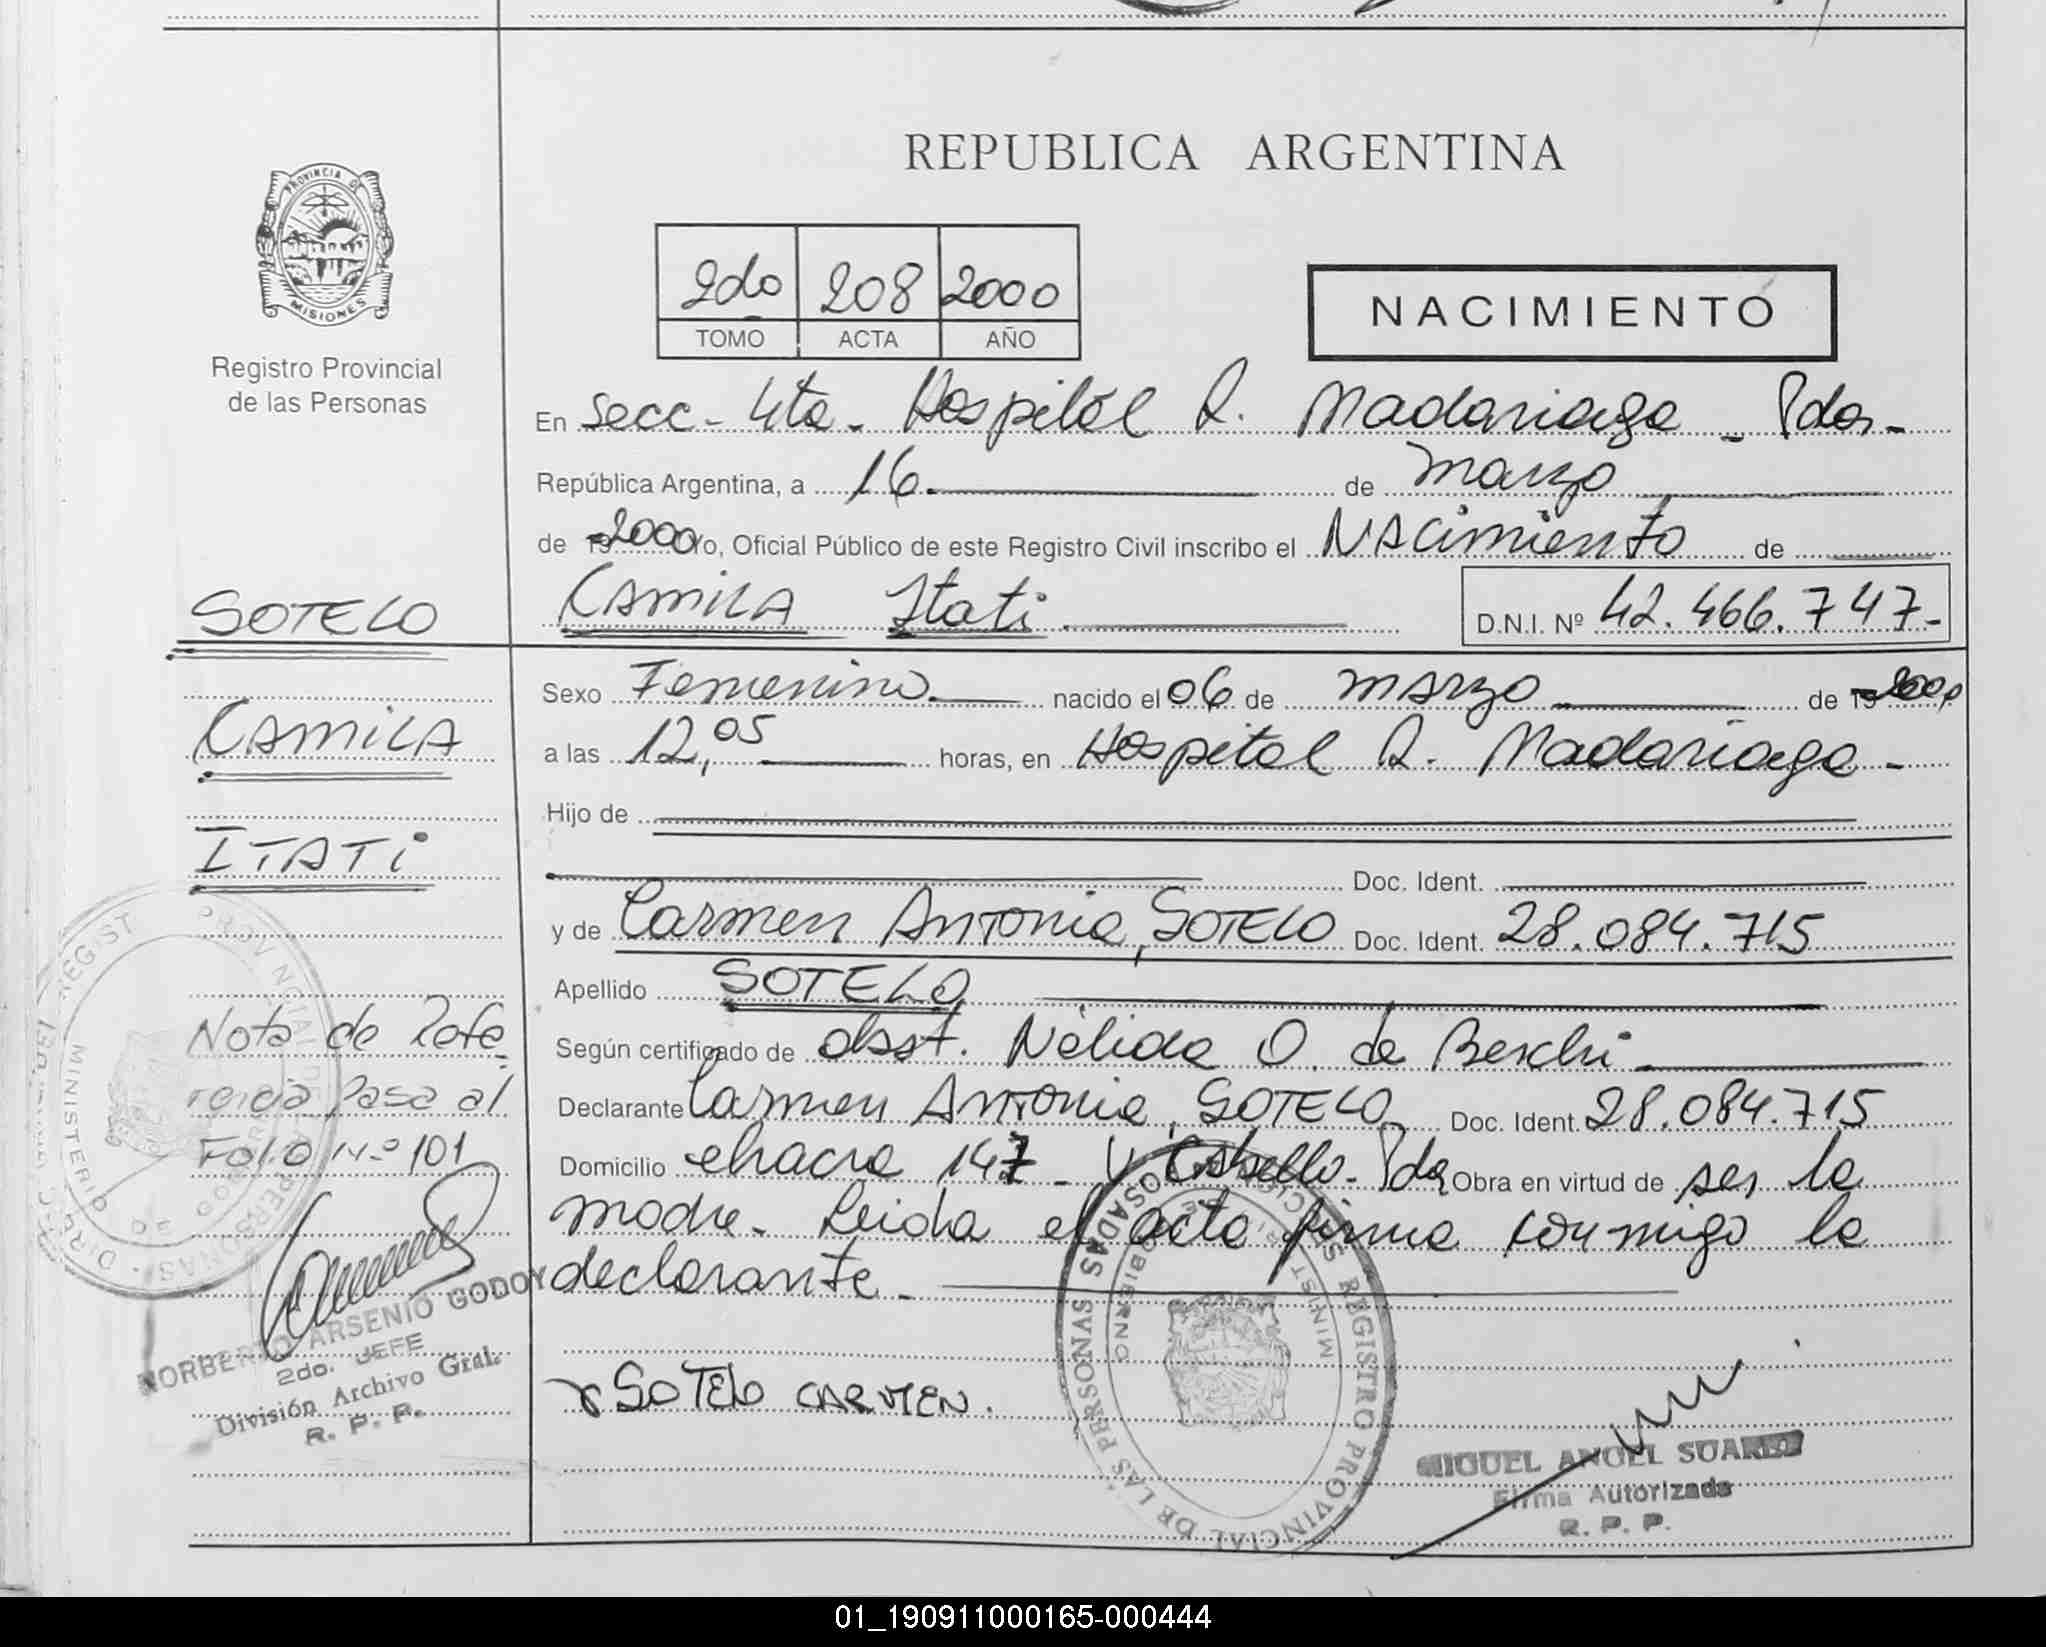 REPUBLICA ARGENTINA
PROVINCIA DE
MISIONES
Registro Provincial
de las Personas
2do 208 2000
TOMO ACTA AÑO
NACIMIENTO
En Secc - 4ta - Hospital R. Madariaga - Pdas -
República Argentina, a 16 de Marzo
de 2000 Yo, Oficial Público de este Registro Civil inscribo el NACimiento de
CAMILA Itati D.N.I. Nº 42.466.747-
Sexo Femenino nacido el 06 de marzo de 2000
a las 12,05 horas, en Hospital R. Madariaga -
Hijo de
Doc. Ident.
y de Carmen Antonia, SOTELO Doc. Ident. 28.084.715
Apellido SOTELO
Según certificado de obst. Nélida O. de
Declarante Carmen Antonia, SOTELO Doc. Ident. 28.084.715
Domicilio chacra 147 - V. Cabello - Pdas Obra en virtud de ser la
madre - Leida el acta firma conmigo la
declarante -
SOTELO CARMEN.
SOTELO
CAMILA
ITATI
Nota de Refe
rencia Pasa al
Folio Nº 101
NORBERTO ARSENIO GODOY
2do. JEFE
División Archivo Gral.
R. P. P.
REGISTRO PROVINCIAL DE LAS PERSONAS
POSADAS
MINISTERIO
GOBIERNO
MIGUEL ANGEL SUAREZ
Firma Autorizada
R. P. P.
01_190911000165-000444